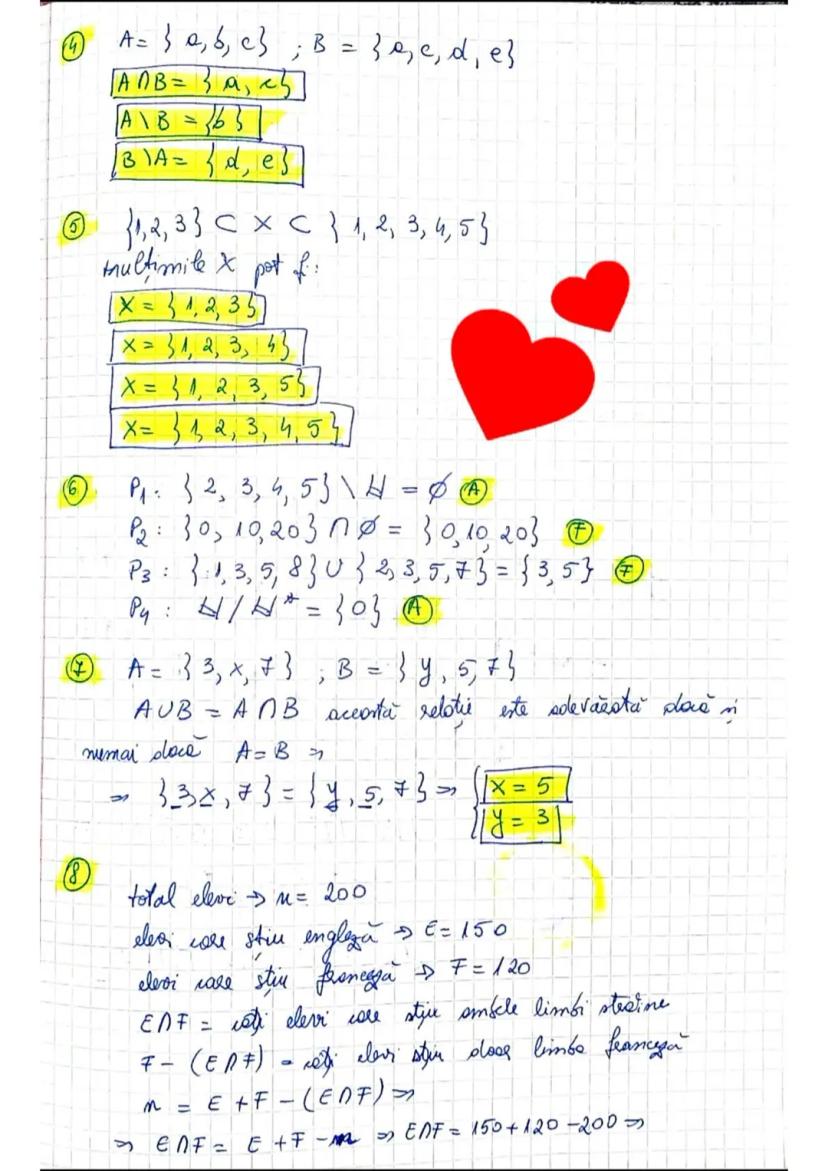 4 A = { a, b, c} ; B = { a, c, d, e}
A ∩ B = { a, c}
A \ B = {b}
B \ A = { d, e}
5 {1, 2, 3} ⊂ X ⊂ { 1, 2, 3, 4, 5}
mulțimile X pot fi:
X = { 1, 2, 3}
X = {1, 2, 3, 4}
X = {1, 2, 3, 5}
X = { 1, 2, 3, 4, 5}
6 P1: { 2, 3, 4, 5} \ ℕ = ∅ A
P2: {0, 10, 20} ∩ ∅ = {0, 10, 20} F
P3: { 1, 3, 5, 8} ∪ { 2, 3, 5, 7} = {3, 5} F
P4: ℕ / ℕ* = {0} A
7 A = { 3, x, 7} ; B = { y, 5, 7}
A ∪ B = A ∩ B această relație este adevărată dacă și
numai dacă A = B ⇒
⇒ {3, x, 7} = { y, 5, 7} ⇒ { x = 5
y = 3
8
total elevi → n = 200
elevi care știu engleză → E = 150
elevi care știu franceză → F = 120
E ∩ F = câți elevi care știu ambele limbi străine
F - (E ∩ F) = câți elevi știu doar limba franceză
n = E + F - (E ∩ F) ⇒
⇒ E ∩ F = E + F - n ⇒ E ∩ F = 150 + 120 - 200 ⇒